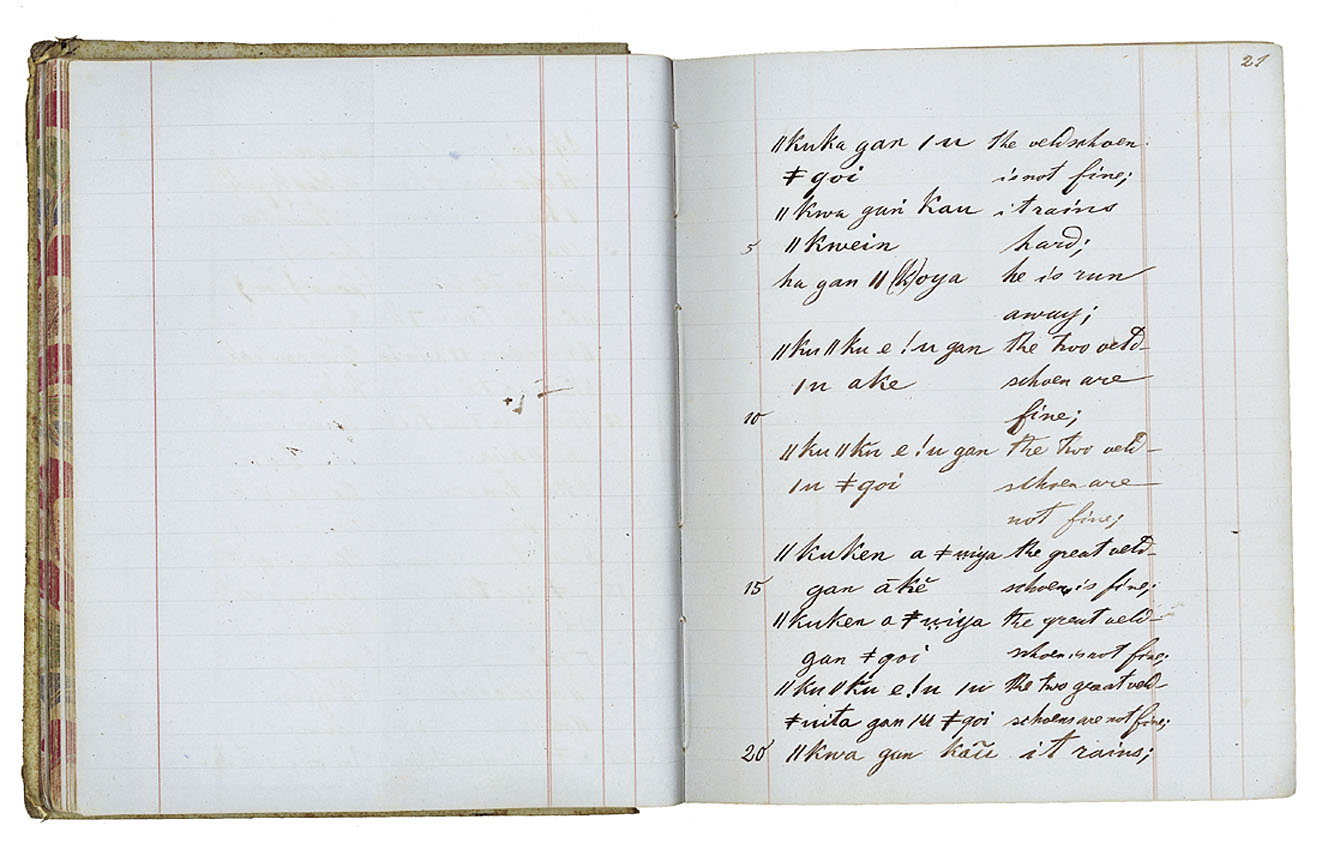 21
ǁkuka gan ǀu the veldschoen
ǂgoi is not fine;
ǁkwa gan kau it rains
5 ǁkwein hard;
ha gan ǁ(k)oya he is run
away;
ǁkuǁku e !u gan the two veld-
ǀu ake schoen are
10 fine;
ǁkuǁku e !u gan the two veld-
ǀu ǂgoi schoen are
not fine;
ǁkuken a ǂuiya the great veld-
15 gan ākĕ schoen is fine;
ǁkuken a ǂuiya the great veld-
gan ǂgoi schoen is not fine;
ǁkuǁku e !u ǀu the two great veld-
ǂuita gan ǀu ǂgoi schoens are not fine;
20 ǁkwa gan kãũ it rains;